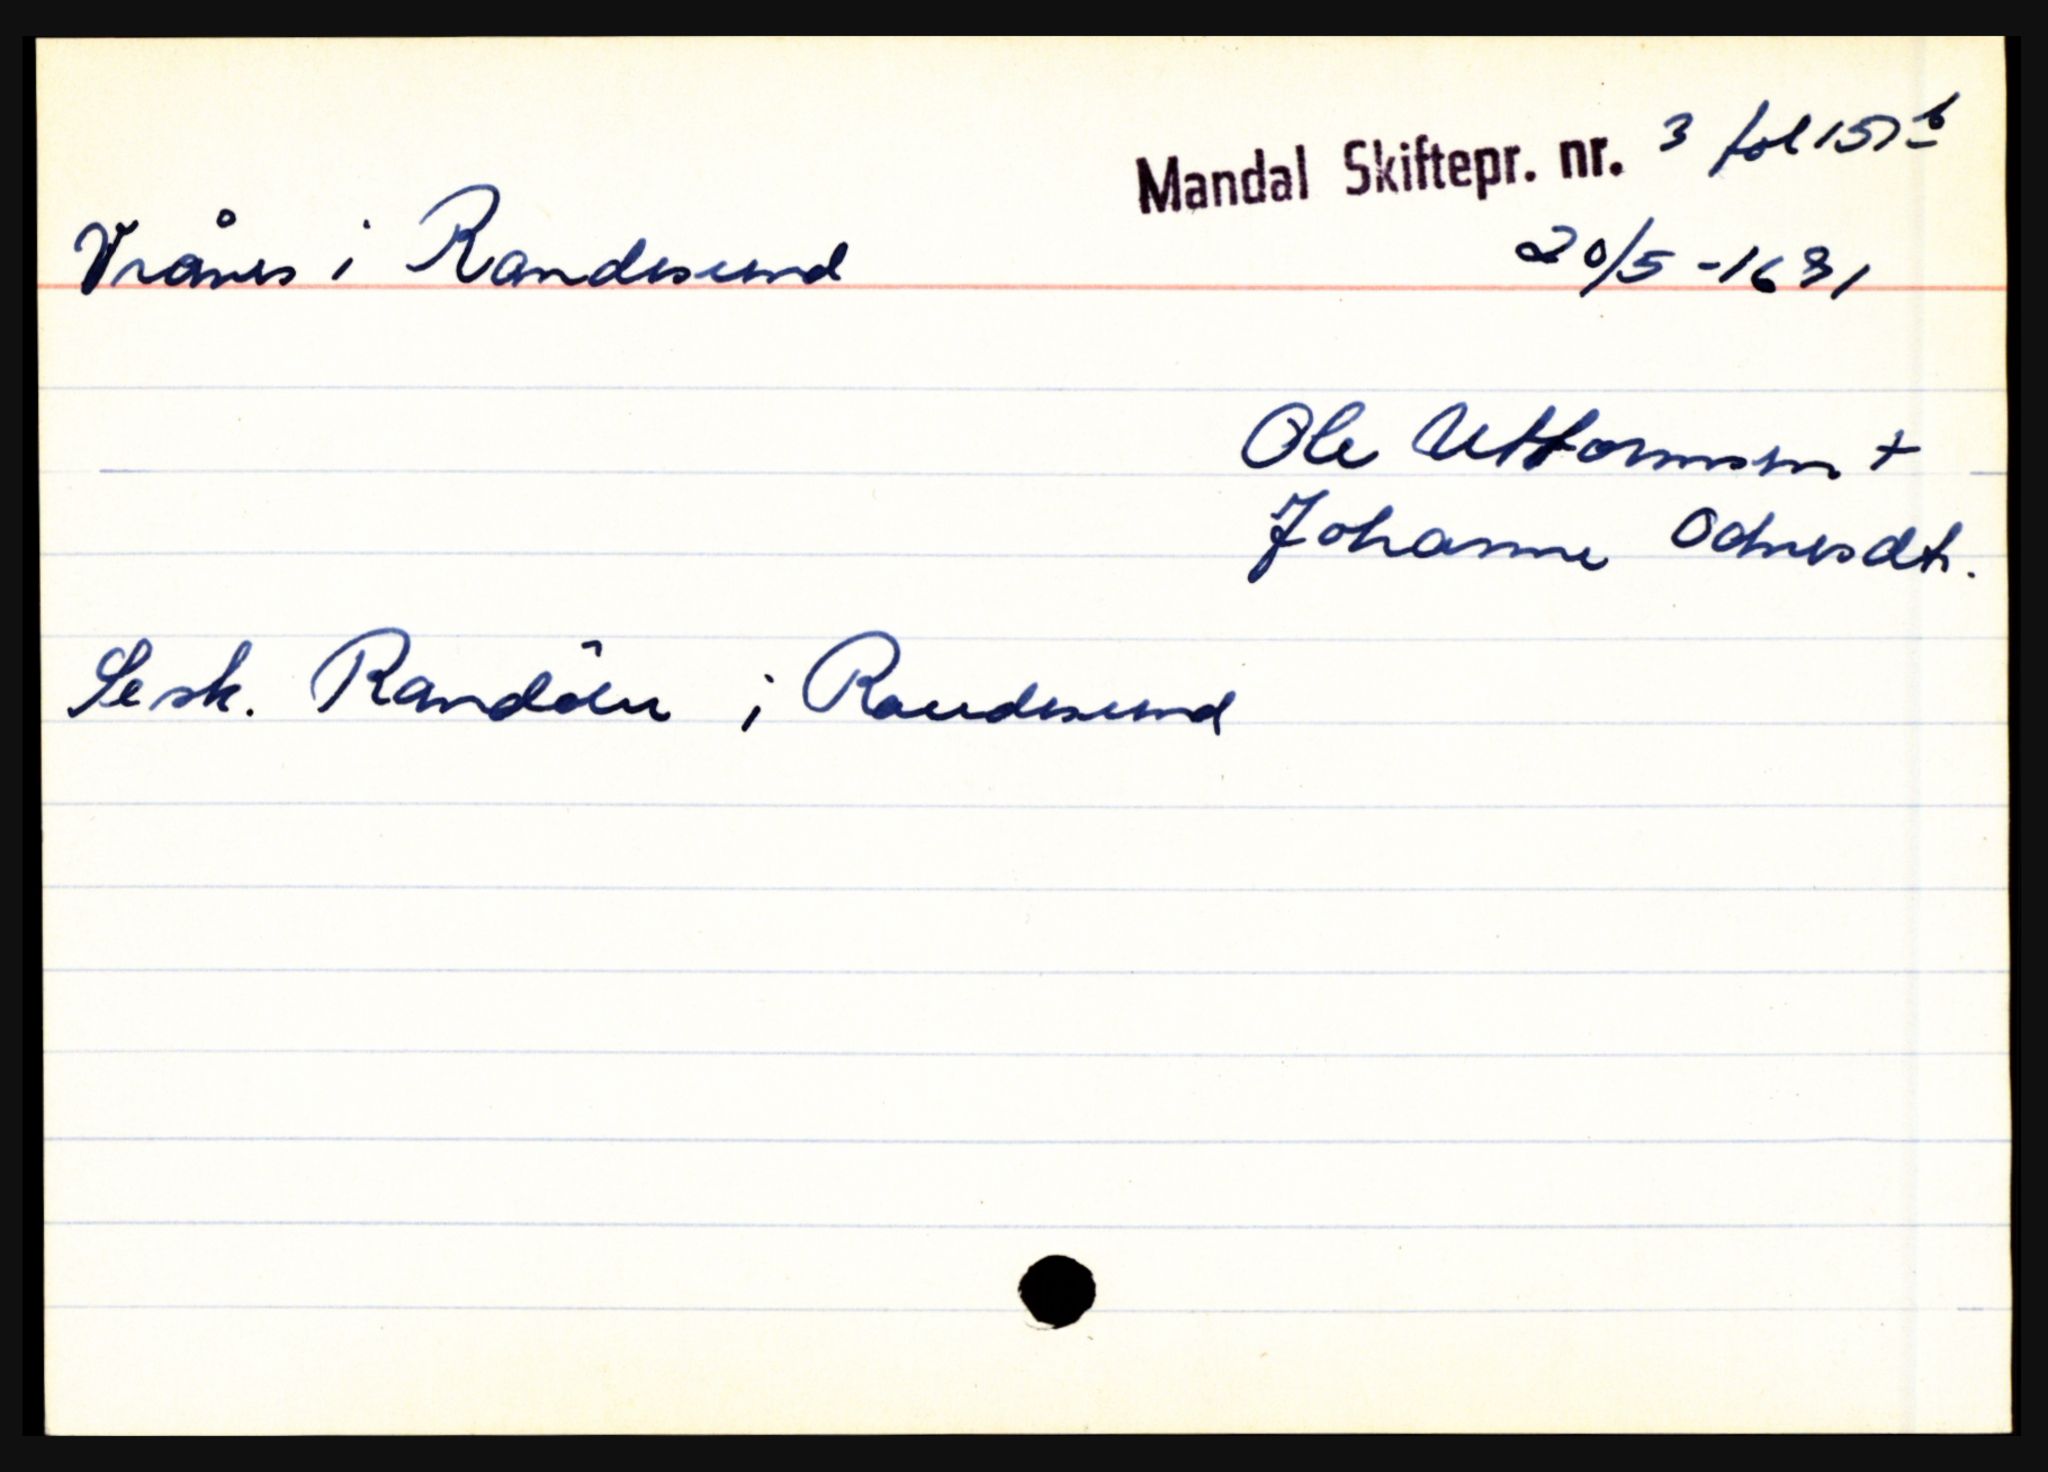 Mandal Skiftepr. nr. 3 fol 157 b
Vrånes i Randesund
20/5 - 1691
Ole Uttormsen +
Johanne Odnesdtr.
Se sk. Randöen i Randesund